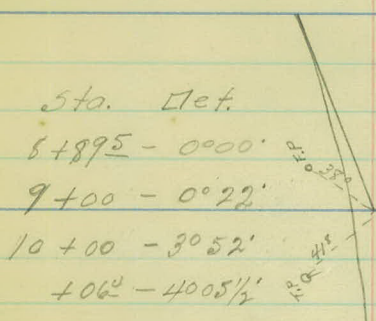 Sta. Def.
8+89⁵ - 0°00'
9+00 - 0°22'
10+00 - 3°52'
+06⁴ - 4°05½'
38⁰
T.P